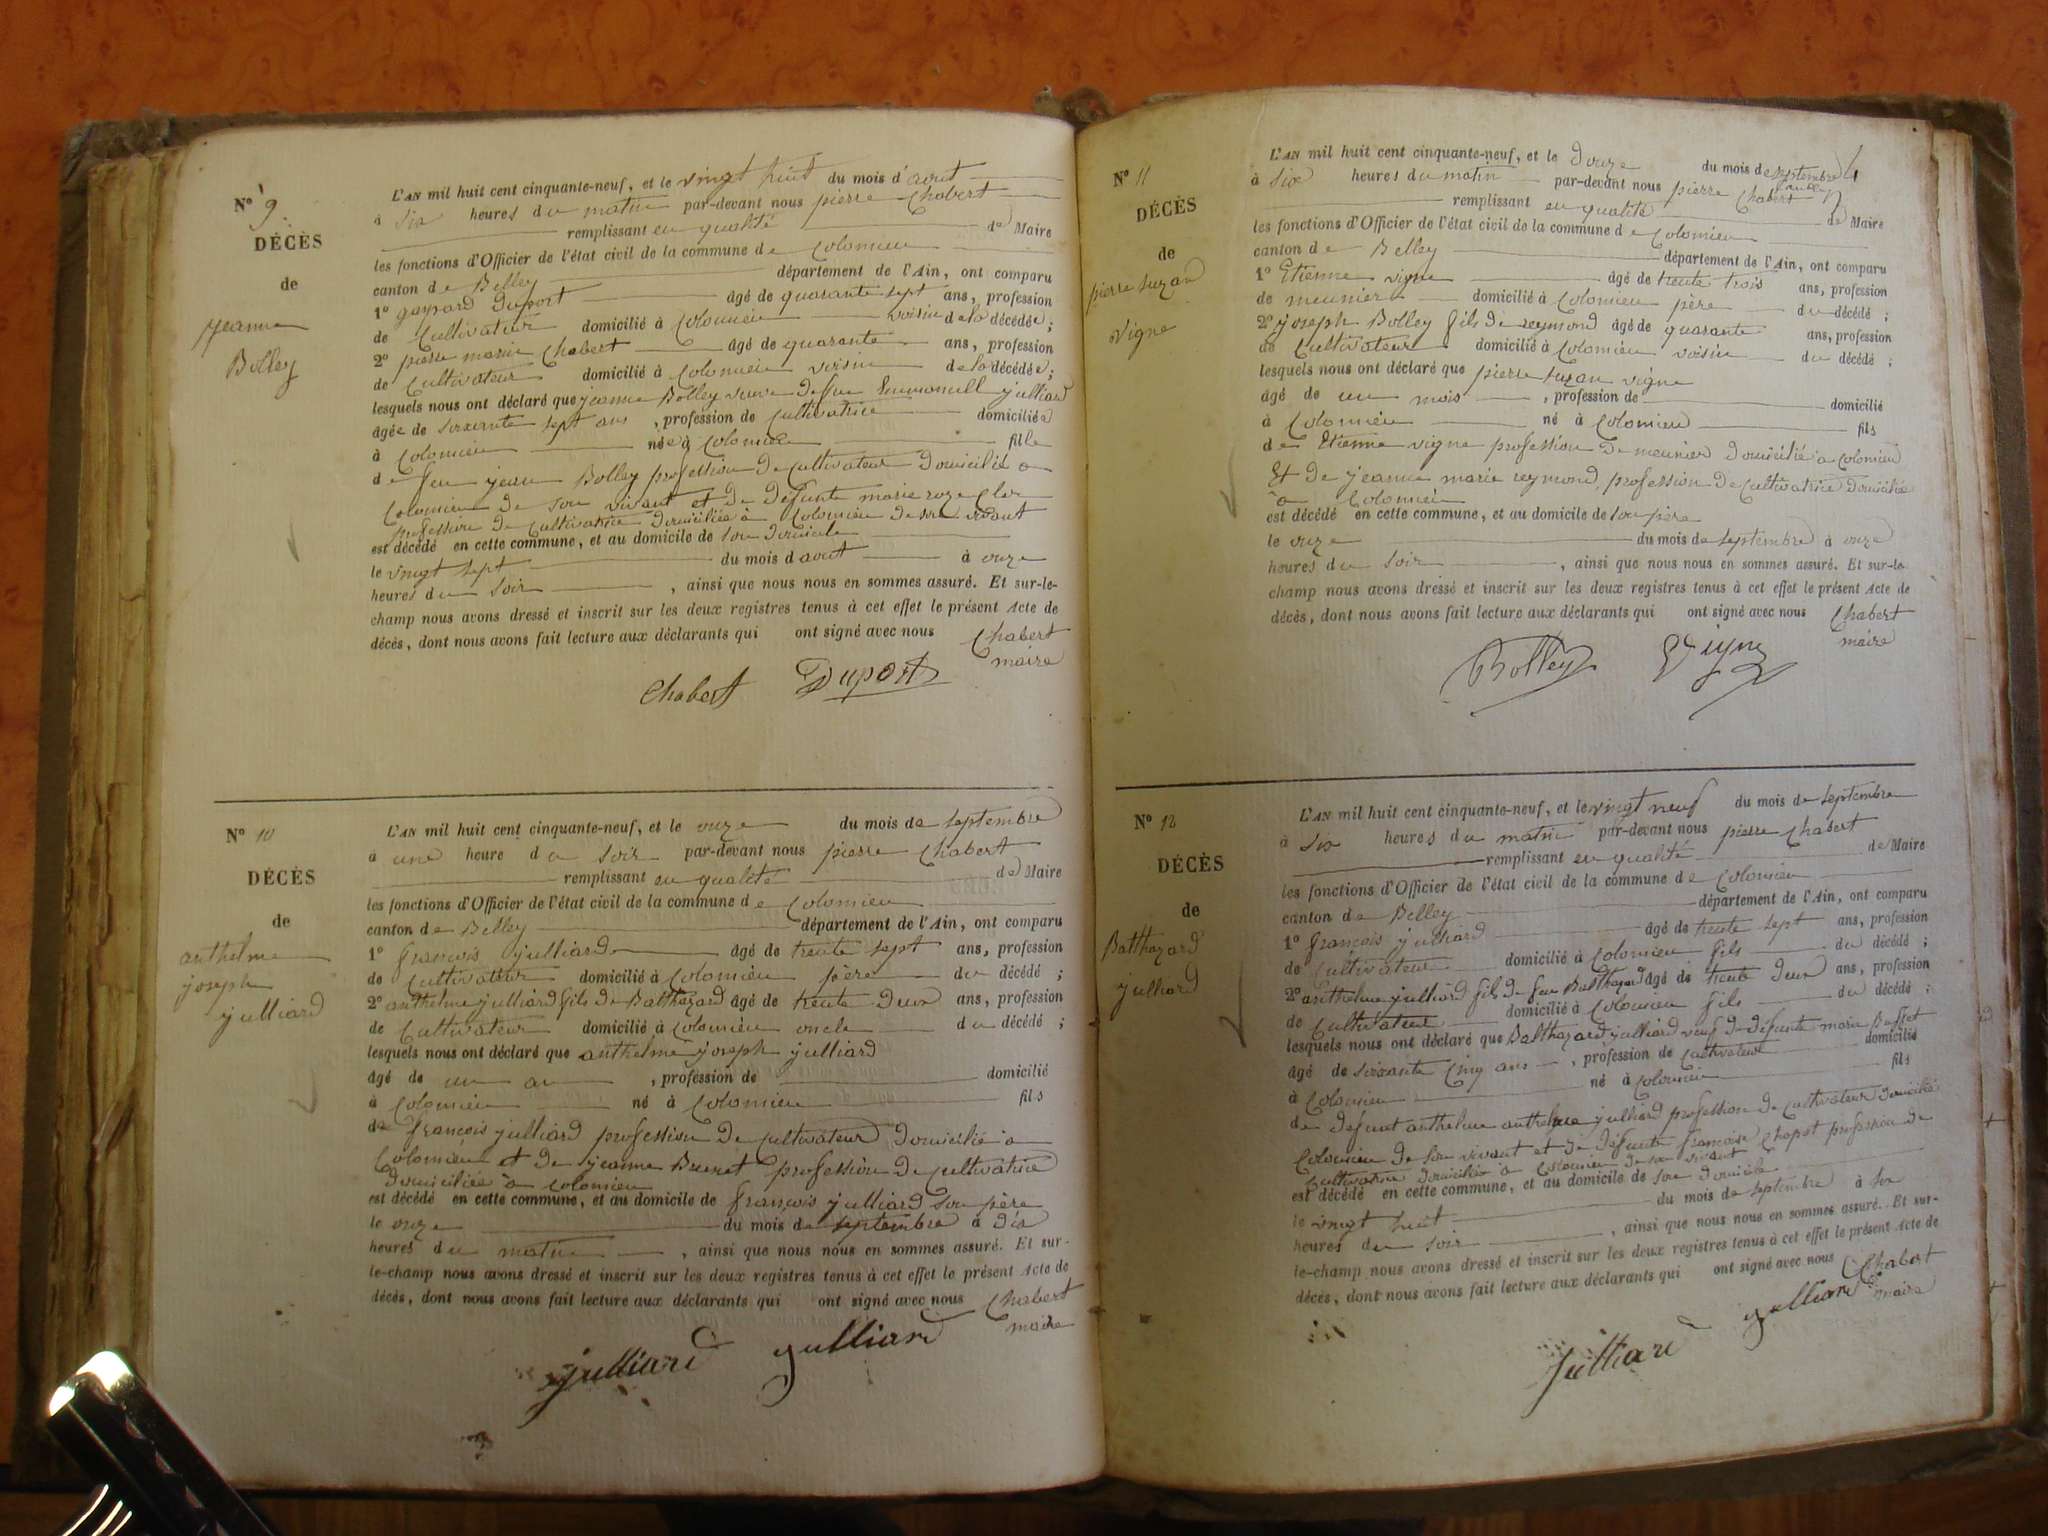 N° 9
DÉCÈS
de
jeanne
Bolley
L'AN mil huit cent cinquante-neuf, et le vingt huit du mois d'aout
à six heures du matin par-devant nous pierre Chabert
remplissant en qualité de Maire
les fonctions d'Officier de l'état civil de la commune de Colomieu
canton de Belley département de l'Ain, ont comparu
1° gaspard Duport âgé de quarante sept ans, profession
de Cultivateur domicilié à Colomieu voisin de la décédée;
2° pierre marie Chabert âgé de quarante ans, profession
de Cultivateur domicilié à Colomieu voisin de la décédée;
lesquels nous ont déclaré que jeanne Bolley veuve de feu Emmanuell julliard
âgée de soixante sept ans, profession de Cultivatrice domiciliée
à Colomieu née à Colomieu fille
de feu jean Bolley profession de cultivateur domicilié a
Colomieu de son vivant et de defunte marie roze
profession de cultivatrice domiciliée à Colomieu de son vivant
est décédé en cette commune, et au domicile de son domicile
le vingt sept du mois d aout à onze
heures du soir, ainsi que nous nous en sommes assuré. Et sur-le-
champ nous avons dressé et inscrit sur les deux registres tenus à cet effet le présent Acte de
décès, dont nous avons fait lecture aux déclarants qui ont signé avec nous Chabert
maire
Chabert Duport
N° 10
DÉCÈS
de
anthelme
joseph
julliard
L'AN mil huit cent cinquante-neuf, et le onze du mois de septembre
à une heure du soir par-devant nous pierre Chabert
remplissant en qualité de Maire
les fonctions d'Officier de l'état civil de la commune de Colomieu
canton de Belley département de l'Ain, ont comparu
1° françois julliard âgé de trente sept ans, profession
de Cultivateur domicilié à Colomieu père du décédé;
2° anthelme julliard fils de Balthazard âgé de trente deux ans, profession
de Cultivateur domicilié à Colomieu oncle du décédé;
lesquels nous ont déclaré que anthelme joseph julliard
âgé de un an, profession de domicilié
à Colomieu né à Colomieu fils
de françois julliard profession de cultivateur domicilié a
Colomieu et de jeanne Brunet profession de cultivatrice
domiciliée à Colomieu
est décédé en cette commune, et au domicile de françois julliard son père
le onze du mois de septembre à dix
heures du matin, ainsi que nous nous en sommes assuré. Et sur-
le-champ nous avons dressé et inscrit sur les deux registres tenus à cet effet le présent Acte de
décès, dont nous avons fait lecture aux déclarants qui ont signé avec nous Chabert
maire
julliard julliard
N° 11
DÉCÈS
de
pierre suzan
vigne
L'AN mil huit cent cinquante-neuf, et le douze du mois de septembre
à six heures du matin par-devant nous pierre Chabert
remplissant en qualité de Maire
les fonctions d'Officier de l'état civil de la commune de Colomieu
canton de Belley département de l'Ain, ont comparu
1° Etienne vigne âgé de trente trois ans, profession
de meunier domicilié à Colomieu père du décédé;
2° joseph Bolley fils de reymond âgé de quarante ans, profession
de Cultivateur domicilié à Colomieu voisin du décédé;
lesquels nous ont déclaré que pierre suzan vigne
âgé de un mois, profession de domicilié
à Colomieu né à Colomieu fils
de Etienne vigne profession de meunier domicilié a Colomieu
Et de jeanne marie reymond profession de cultivatrice domiciliée
à Colomieu
est décédé en cette commune, et au domicile de son père
le onze du mois de septembre à onze
heures du soir, ainsi que nous nous en sommes assuré. Et sur-le-
champ nous avons dressé et inscrit sur les deux registres tenus à cet effet le présent Acte de
décès, dont nous avons fait lecture aux déclarants qui ont signé avec nous Chabert
maire
Bolley Vigne
N° 12
DÉCÈS
de
Balthazard
julliard
L'AN mil huit cent cinquante-neuf, et le vingt neuf du mois de septembre
à six heures du matin par-devant nous pierre Chabert
remplissant en qualité de Maire
les fonctions d'Officier de l'état civil de la commune de Colomieu
canton de Belley département de l'Ain, ont comparu
1° françois julliard âgé de trente sept ans, profession
de Cultivateur domicilié à Colomieu fils du décédé;
2° anthelme julliard fils de feu Balthazard âgé de trente deux ans, profession
de Cultivateur domicilié à Colomieu fils du décédé;
lesquels nous ont déclaré que Balthazard julliard veuf de defunte marie
âgé de soixante cinq ans, profession de cultivateur domicilié
à Colomieu né à Colomieu fils
de defunt anthelme anthelme julliard profession de cultivateur domicilié
Colomieu de son vivant et de defunte françoise Chapot profession de
cultivatrice domiciliée a Colomieu de son vivant
est décédé en cette commune, et au domicile de son domicile
le vingt huit du mois de septembre à six
heures du soir, ainsi que nous nous en sommes assuré. Et sur-
le-champ nous avons dressé et inscrit sur les deux registres tenus à cet effet le présent Acte de
décès, dont nous avons fait lecture aux déclarants qui ont signé avec nous Chabert
maire
julliard julliard